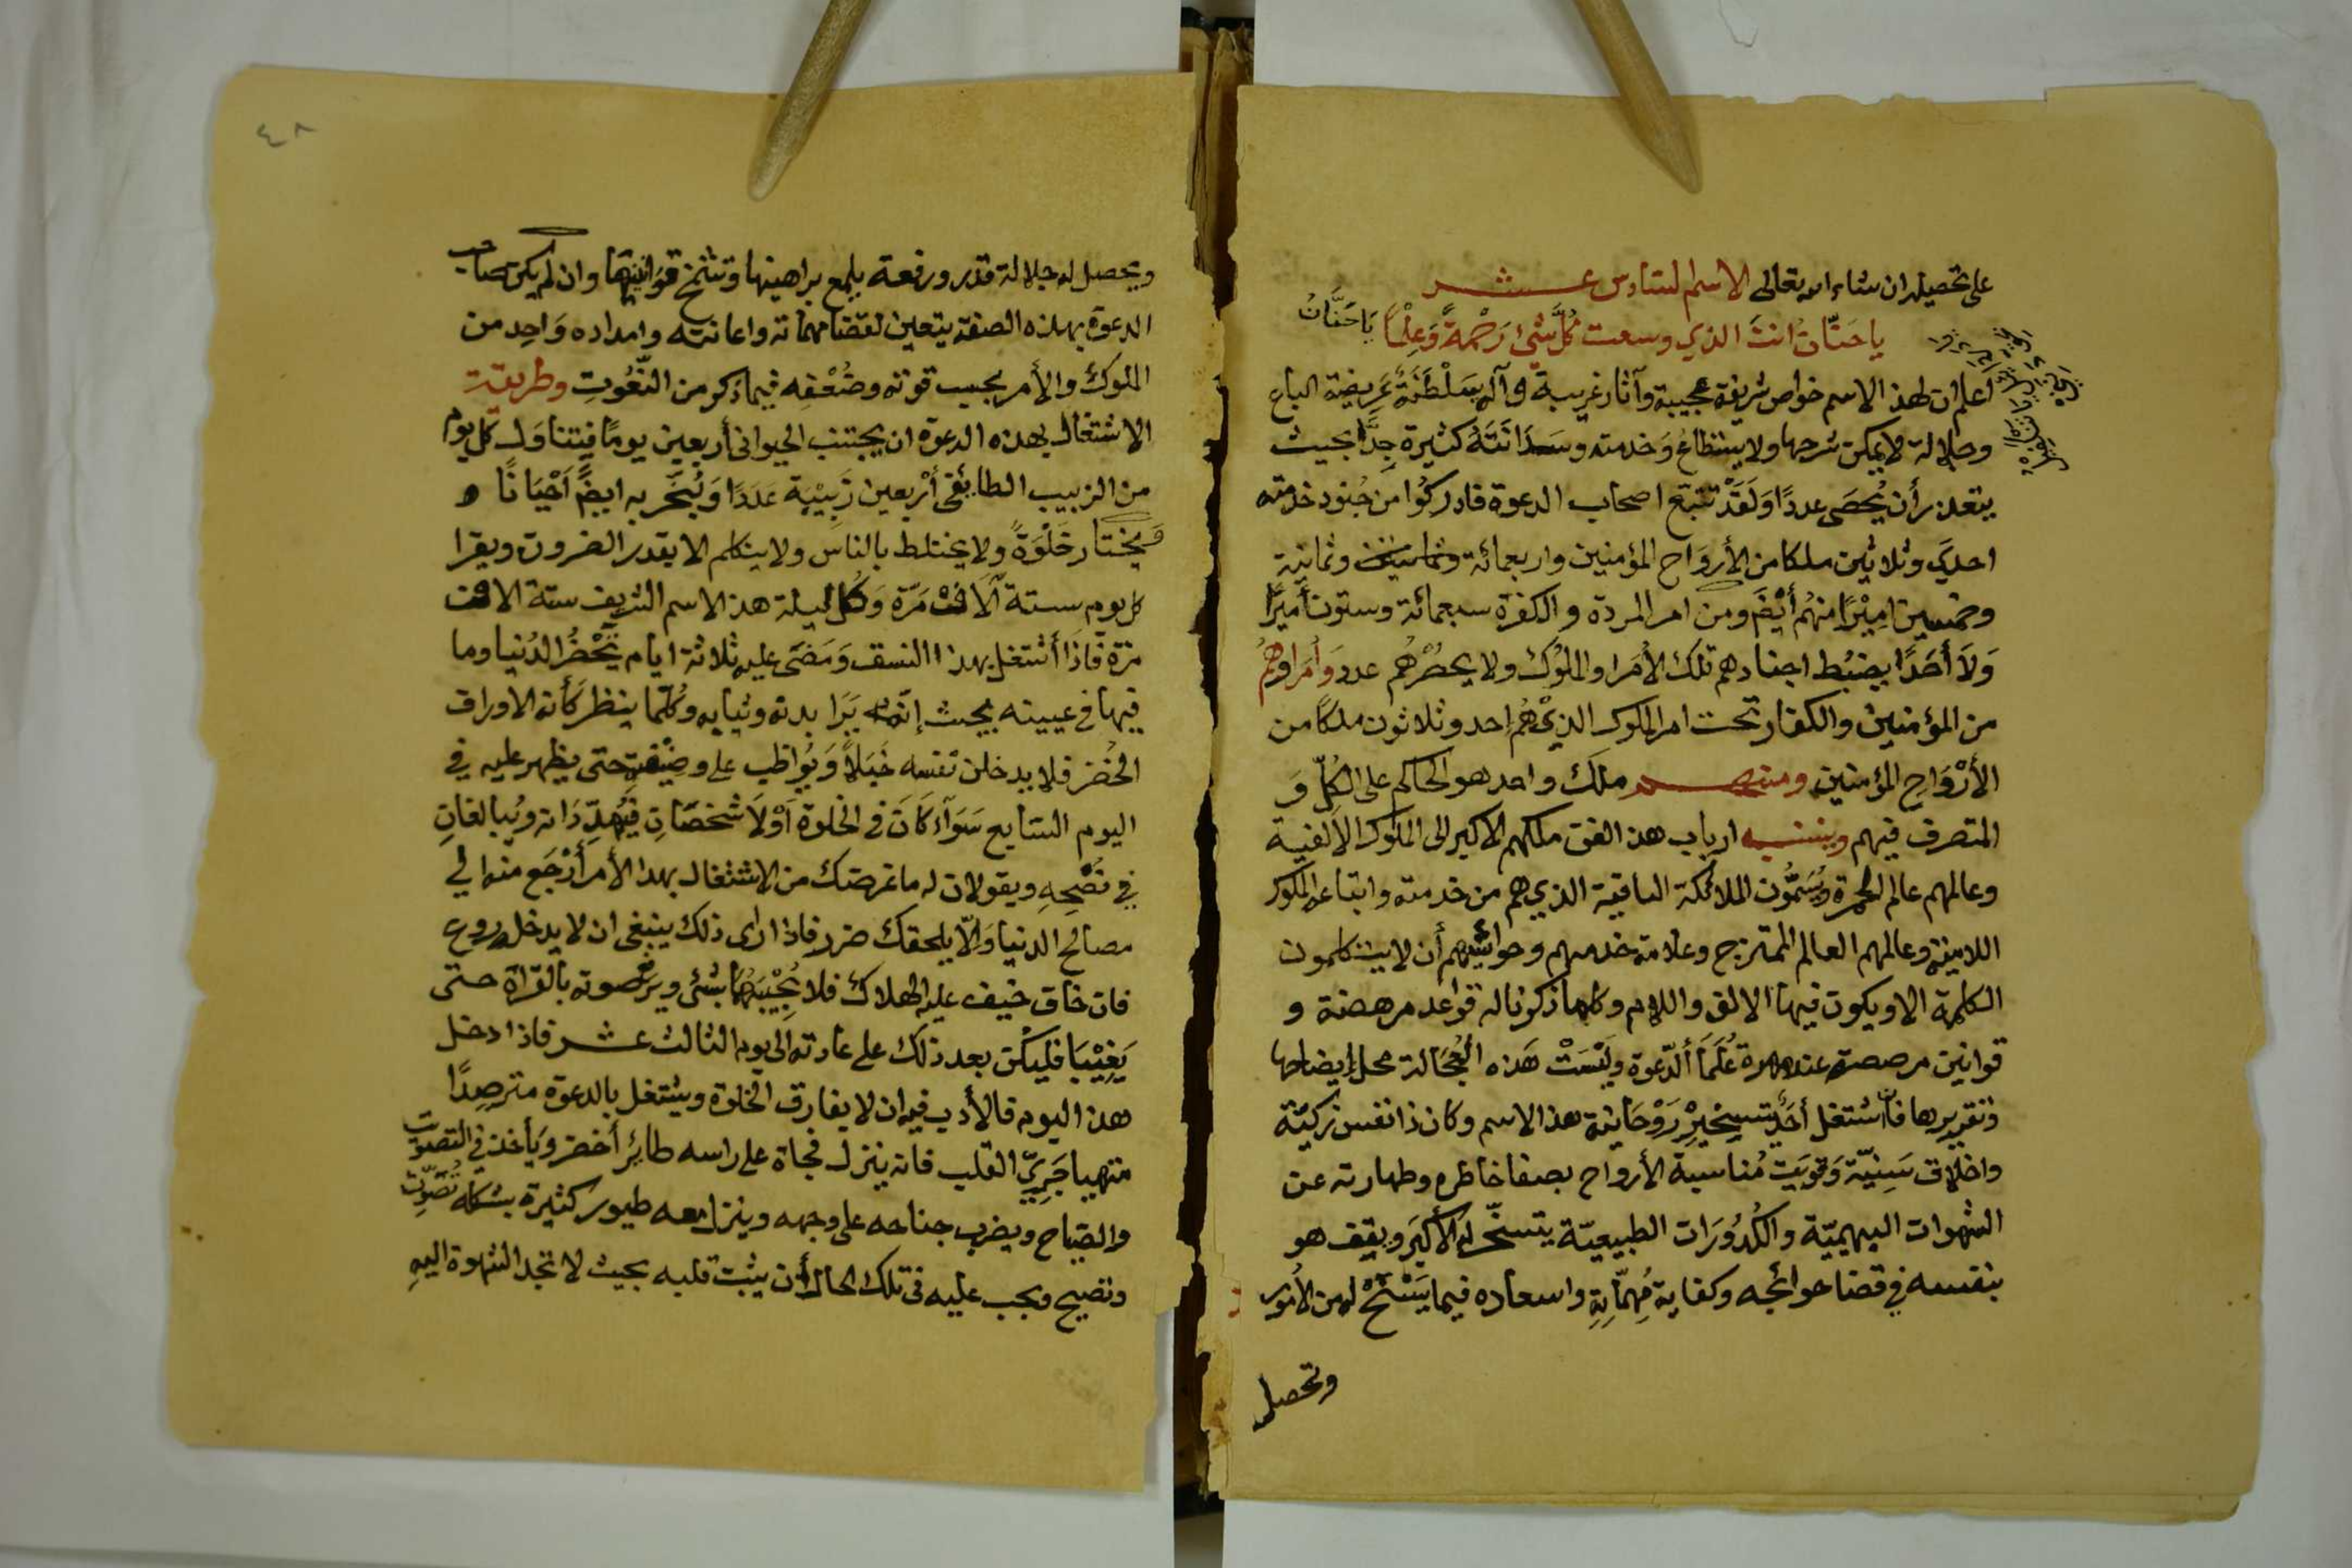 على تحصيله ان شاء الله تعالى الاسم السادس عشر
يا حَنّان انتَ الذي وسعت كُلَّ شَيْءٍ رَحْمَةً وَعِلْمًا يَا حَنَّانُ
اعلم ان لهذ الاسم خواص شريفة عجيبة وآثار غريبة و له سَلْطَنَةً عَرِيضة الباع
وجلالة لا يمكن شرحها ولا يستطاعُ وَخدمته وسَدَانَتَهُ كثيرة جِدًّا بحيث
يتعذر أن يُحصَى عددًا وَلَقَدْ تتبع اصحاب الدعوة فادركُوا من جُنود خدمته
احدي وثلاثين ملكا من الأروَاح المؤمنين واربعمائة وثمانية
وخمسين امِيْرًا منهُم أَيْضًا ومن امر المردة والكفرة سبعمائة وستون أميرًا
وَلاَ أَحَدًا يضبُط اجنادهم تلك الأُمَرا والملوُك ولا يحصُرُهُم عدد وَأُمَراؤهُمُ
من المؤمنين والكفار تحت امر الملوك الذيْ هُم إحد وثلاثون ملكًا من
الأَرْوَاحِ المؤمنين ومنهم ملك واحد هو الحاكم على الكُلِّ وَ
المتصرف فيهم وينسب ارباب هذ الفن ملكهم الاكبر الى الملوك الألفية
وعالمهم عالم الحمرة ويُسَمُّون الملائكة الباقية الذي هم من خدمته واتباعه الملوك
اللامية وعالمهم العالم الممتزج وعلامة خدمهم وحواشيهم أن لا يتكلمون
الكلمة الا ويكون فيها الالف واللام وكلما ذكرنا له قواعد مرهصة و
قوانين مرصصة عند مهرة عُلَمَا ألدّعوة وَلَيْسَتْ هَذه العُجَالة محل إيضاحها
وتقريرها فان اشتغل أحَد بتسخيْرِ رَوْحَانية هذ الاسم وكان ذا نفس زكيّة
واخلاق سَنِيّة وَقويَت مُناسبة الأرواح بصفا خاطره وطهارته عن
الشهوات البهيميّة والكُدُورَات الطبيعيّة يتسخّر له الأكبَر ويقف هو
بنفسه في قضا حوائجه وكفاية مُهمّاتِهِ واسعاده فيما يَسْنَحْ له من الأمُور
وتحصل
٤٨
ويحصل له جلالة قدر ورفعة يلمع براهينها وتشمخ قوَانينها وان لم يكن صاحب
الدعوة بهذه الصفة يتعين لقضا مهماته واعانته وامداده وَاحِد من
الملوك والأمر بحسب قوته وضُعْفِه فيما ذكر من النّعُوتِ وطريقة
الاشتغال بهذه الدعوة ان يجتنب الحيوانى أربعين يومًا فيتناوَل كل يوم
من الزبيب الطائفي أرْبعين زَبِيْبَة عَدَدًا وَيُبَخّر به ايضً أحْيَانًا و
وَيختار خَلْوَةً ولا يختلط بالناس ولا يتكلم الا بقدر الضرورة ويقرا
كل يوم ستة آلَافْ مَرّة وَكُل ليلة هذ الاسم الشريف ستة الاف
مرة فَاذَا أشتغل بهذا النسق وَمَضَى عليه ثلاثة ايام تَخْضُرُ الدُنيا وما
فيها في عينيه بحيث إنّه يَرَا بدنه وثيابه وكُلّما ينظر كَأنه الاوراق
الخُضر فلا يدخلن نفسه خَبَلاً وَيُوَاظب على وضِيْفته حتى يظهر عليه في
اليوم السّابع سَوَآء كَانَ في الخلوة أوْ لاَ شخصَانِ فيُهَدِّدَانه ويُبالغانِ
في نُصْحِهِ ويقولان له ما غرضك من الاشتغال بهذا الأمر أرْجَع منه الي
مصالح الدنيا وَإلّا يلحقك ضرر فاذا راى ذلك ينبغي ان لا يدخله روع
فان خاف خيف عليه الهلاك فلا يُجِيْبَهُمَا بشئ ويرفع صوته بالقراة حتى
يَغِيْبَا فليكن بعد ذلك على عادته الى يوم الثالث عشر فاذا دخل
هذ اليوم فالأدب فيه ان لا يفارق الخلوة ويشتغل بالدعوة مترصِدًا
متهيا جَرِيّ القلب فانه ينزل فجاة على راسه طائر أخضر وَيأخذ في التصويت
والصّياح ويضرب جناحه على وجهه وينزل معه طيور كثيرة بشكله تُصَوّت
وتصيح ويجب عليه في تلك الحال أن يثبت قلبه بحيث لا تجد الشهوة اليهِ